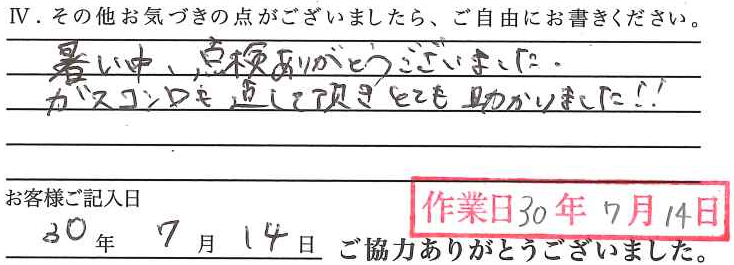 Ⅳ．その他お気づきの点がございましたら、ご自由にお書きください。
暑い中、点検ありがとうございました.
ガスコンロも直して頂きとても助かりました!!
お客様ご記入日
作業日30年7月14日
30年7月14日 ご協力ありがとうございました。